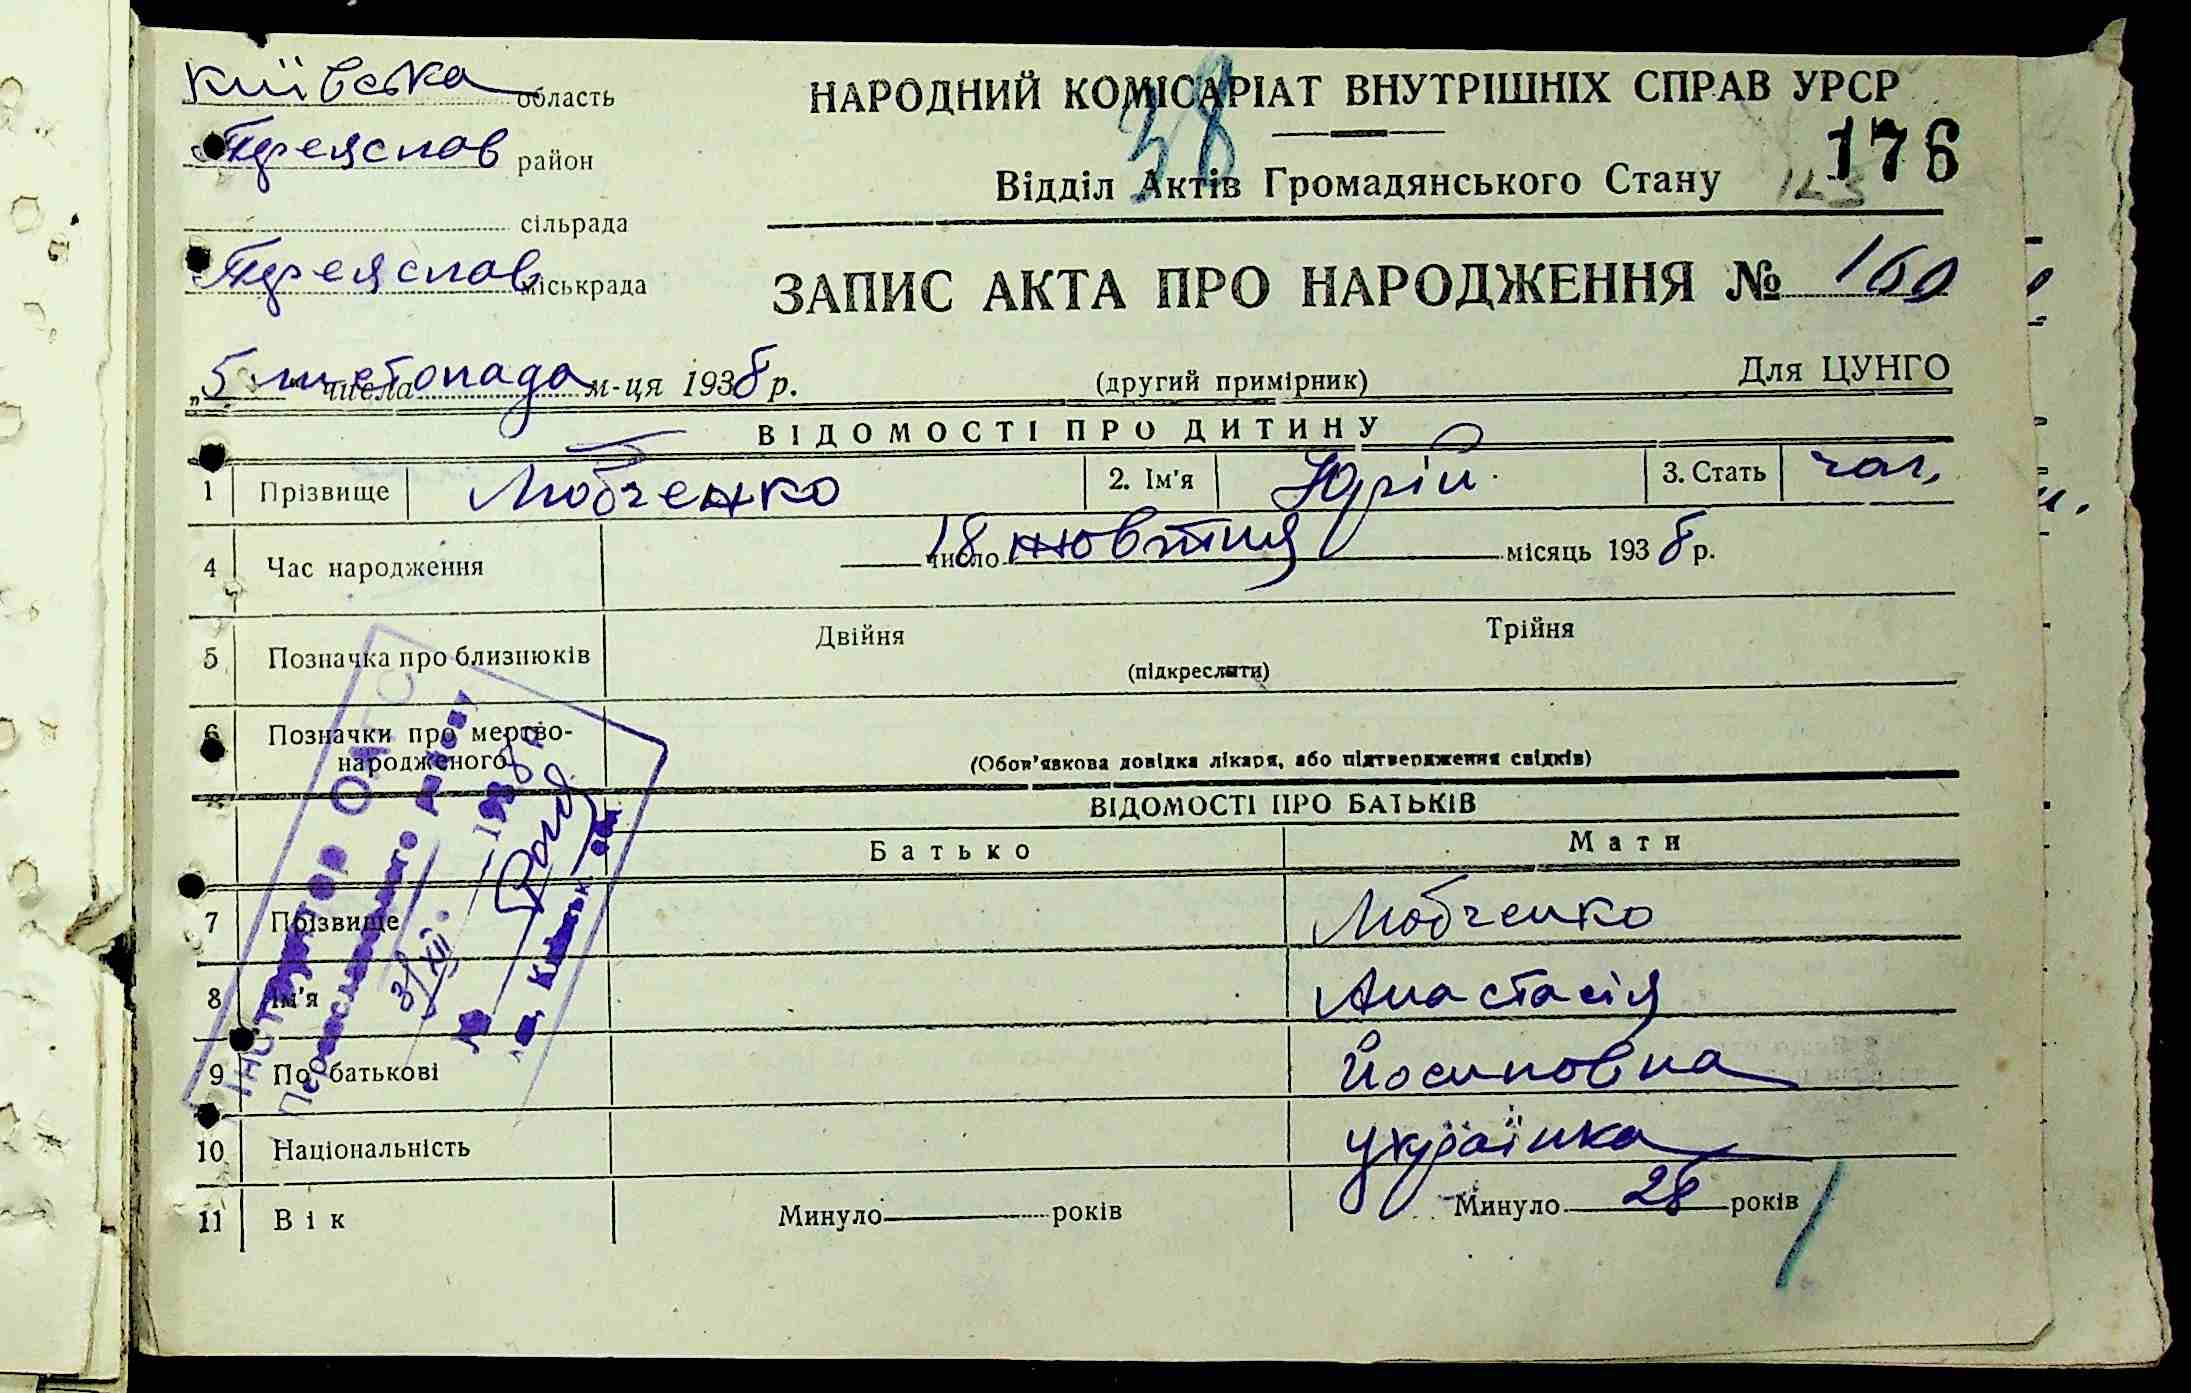 Київська область
Переяслав район
сільрада
Переяслав міськрада
НАРОДНИЙ КОМІСАРІАТ ВНУТРІШНІХ СПРАВ УРСР
38
176
Відділ Актів Громадянського Стану
ЗАПИС АКТА ПРО НАРОДЖЕННЯ № 160
„5" числа листопада м-ця 1938 р.
(другий примірник)
Для ЦУНГО
ВІДОМОСТІ ПРО ДИТИНУ
1 Прізвище Любченко 2. Ім'я Юрій 3. Стать чол.
4 Час народження 18 число жовтня місяць 1938 р.
5 Позначка про близнюків Двійня Трійня
(підкреслити)
6 Позначки про мертво-
народженого
(Обов'язкова довідка лікаря, або підтвердження свідків)
ВІДОМОСТІ ПРО БАТЬКІВ
Батько Мати
7 Прізвище Любченко
8 Ім'я Анастасія
9 По батькові Йосиповна
10 Національність українка
11 Вік Минуло років Минуло 28 років
Інструктор ОАГС
Переяславського району
3/XII 1938 р.